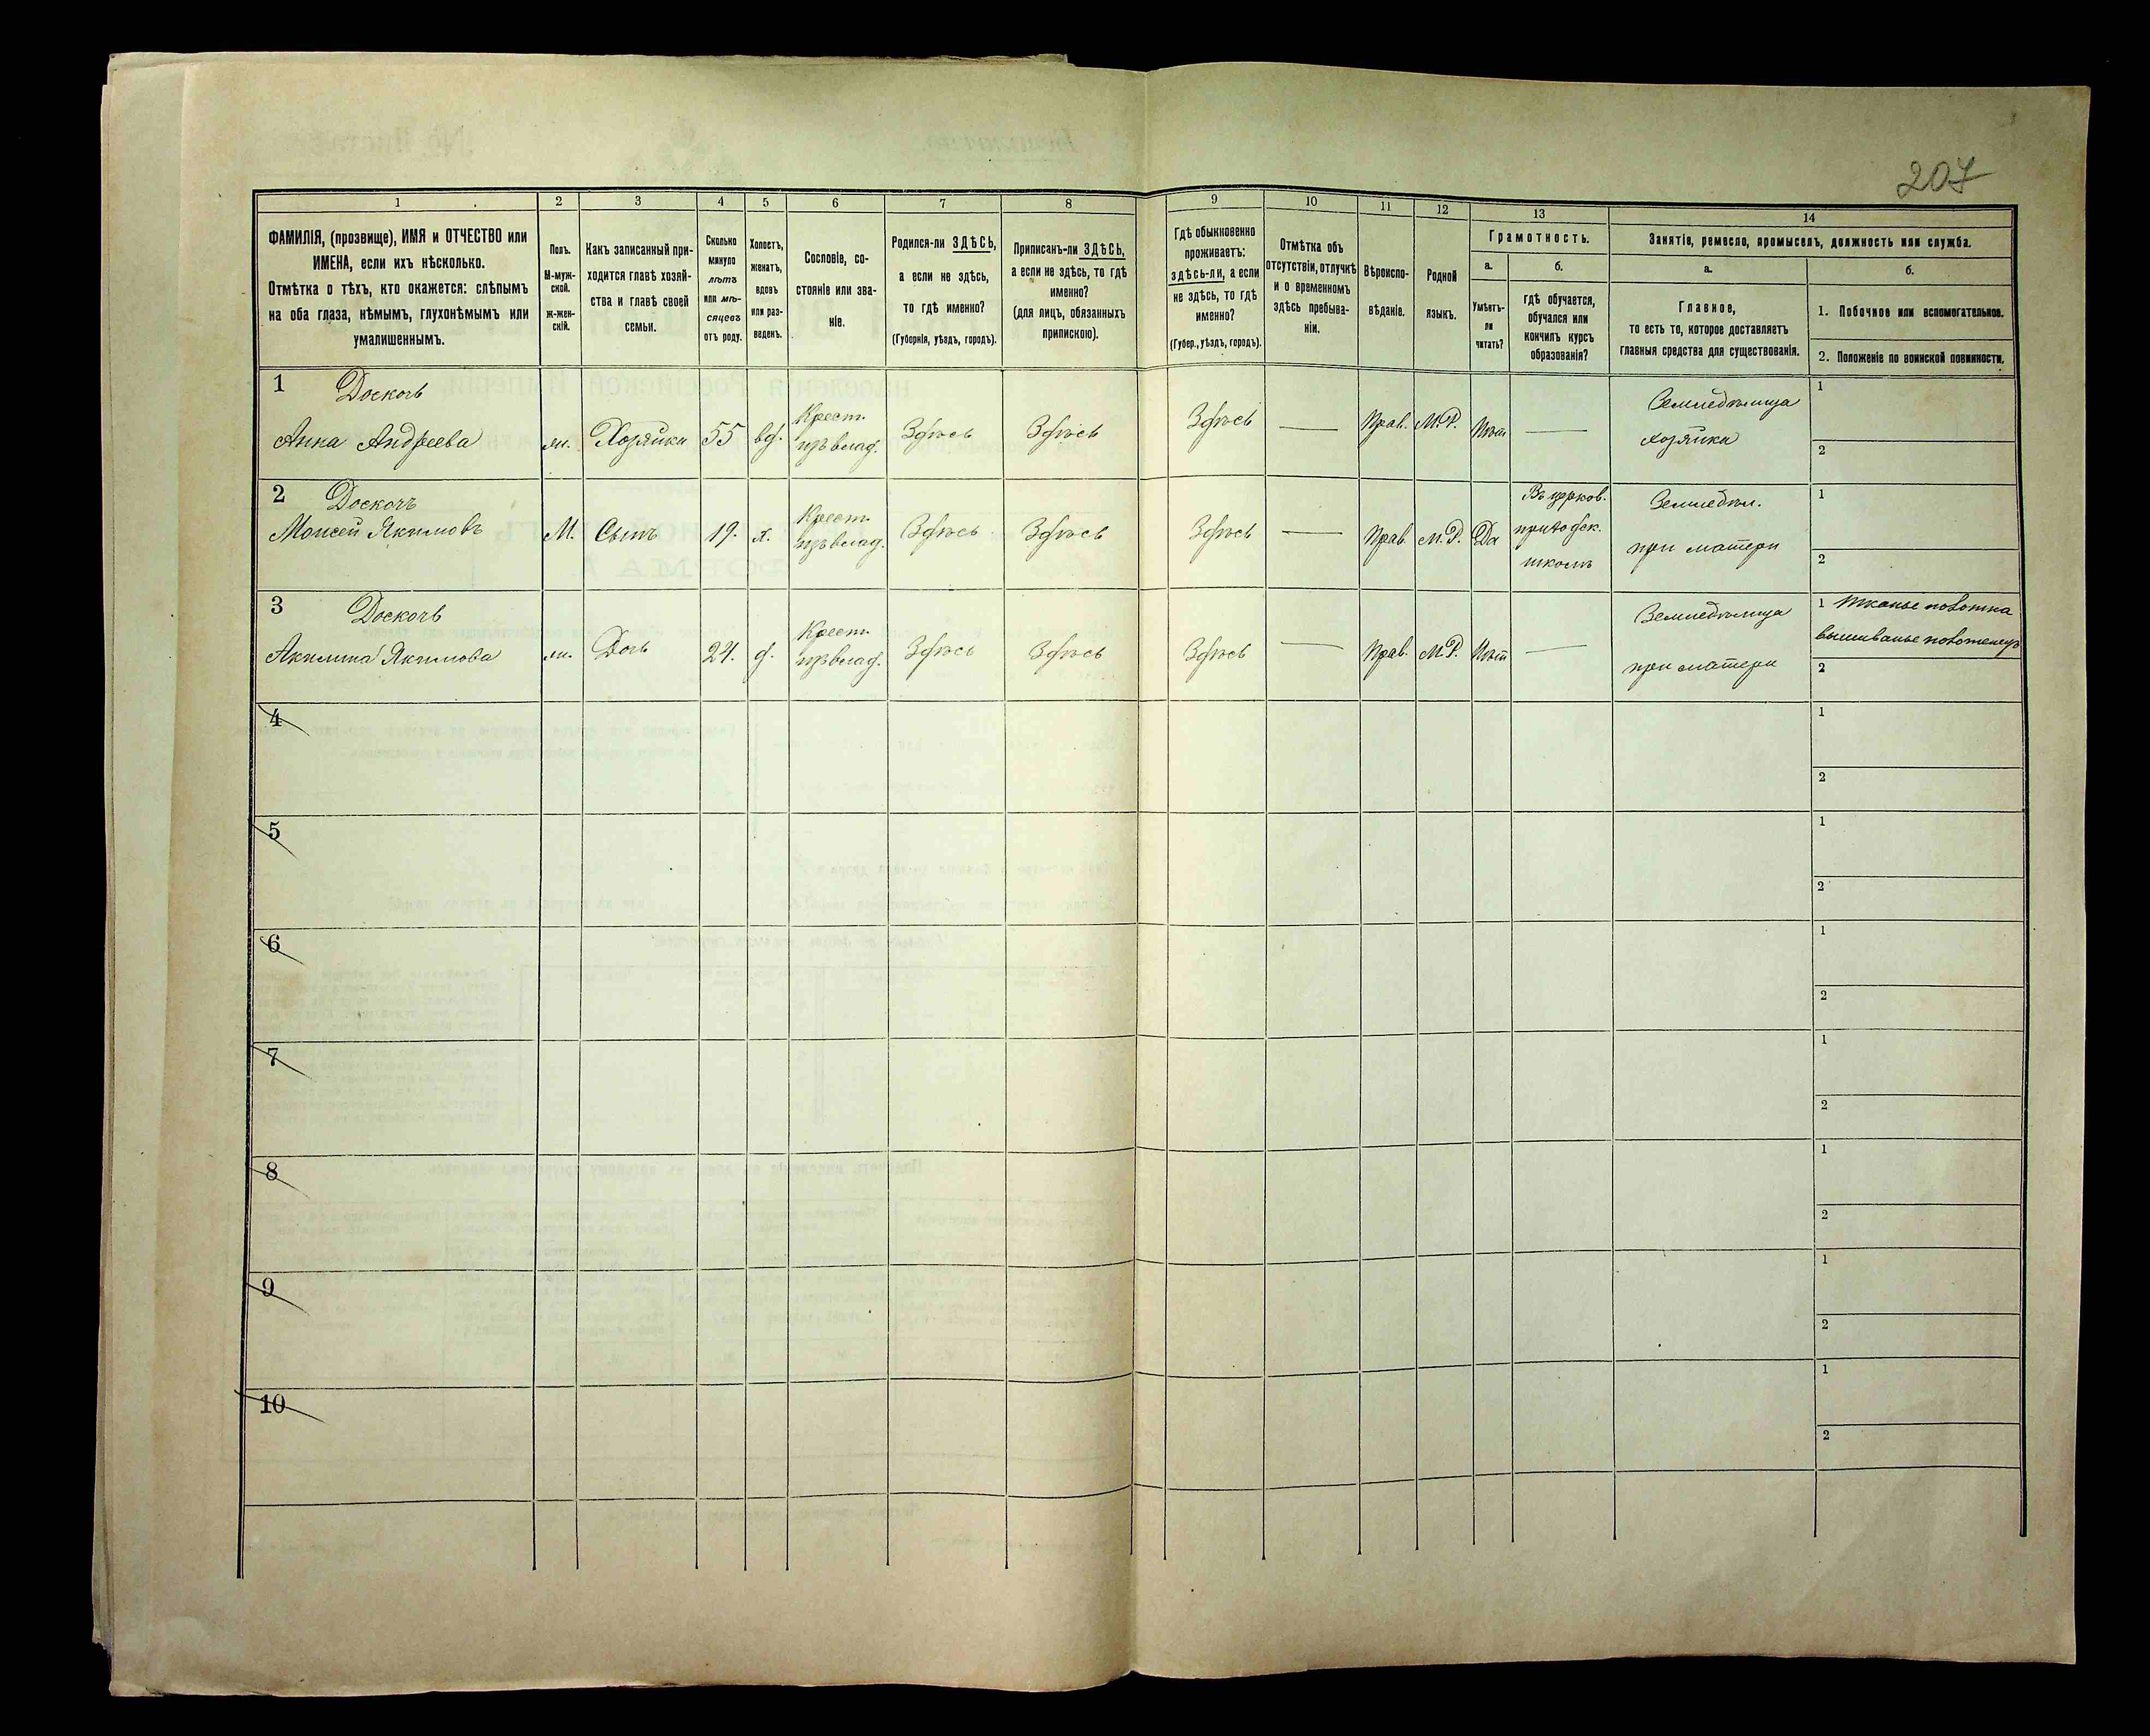 207
1 2 3 4 5 6 7 8 9 10 11 12 13 14
ФАМИЛІЯ, (прозвище), ИМЯ и ОТЧЕСТВО или
ИМЕНА, если ихъ нѣсколько.
Отмѣтка о тѣхъ, кто окажется: слѣпымъ
на оба глаза, нѣмымъ, глухонѣмымъ или
умалишеннымъ.
Полъ.
М-муж-
ской.
Ж-жен-
скій.
Какъ записанный при-
ходится главѣ хозяй-
ства и главѣ своей
семьи.
Сколько
минуло
лѣтъ
или мѣ-
сяцевъ
отъ роду.
Холостъ,
женатъ,
вдовъ
или раз-
веденъ.
Сословіе, со-
стояніе или зва-
ніе.
Родился-ли ЗДѢСЬ,
а если не здѣсь,
то гдѣ именно?
(Губернія, уѣздъ, городъ).
Приписанъ-ли ЗДѢСЬ,
а если не здѣсь, то гдѣ
именно?
(для лицъ, обязанныхъ
припискою).
Гдѣ обыкновенно
проживаетъ:
здѣсь-ли, а если
не здѣсь, то гдѣ
именно?
(Губер., уѣздъ, городъ).
Отмѣтка объ
отсутствіи, отлучкѣ
и о временномъ
здѣсь пребыва-
ніи.
Вѣроиспо-
вѣданіе.
Родной
языкъ.
Грамотность.
а.
Умѣетъ-
ли
читать?
б.
гдѣ обучается,
обучался или
кончилъ курсъ
образованія?
Занятіе, ремесло, промыселъ, должность или служба.
а.
Главное,
то есть то, которое доставляетъ
главныя средства для существованія.
б.
1. Побочное или вспомогательное.
2. Положеніе по воинской повинности.
1 Доскочь
Анна Андреева
ж. Хозяйка 55 вд.
Крест.
изъ влад.
Здѣсь Здѣсь Здѣсь — Прав. М.Р. Нѣт —
Земледѣлица
хозяйка
1
2
2 Доскочъ
Моисей Якимовъ
М. Сынъ 19. х.
Крест.
изъ влад.
Здѣсь Здѣсь Здѣсь — Прав. М.Р. Да
Въ церков.
приходск.
школѣ
Земледѣл.
при матери
1
2
3 Доскочь
Акилина Якимова
ж. Дочь 24. д.
Крест.
изъ влад.
Здѣсь Здѣсь Здѣсь — Прав. М.Р. Нѣт —
Земледѣлица
при матери
1 Тканье полотна
вышиванье полотенецъ
2
4
1
2
5
1
2
6
1
2
7
1
2
8
1
2
9
1
2
10
1
2